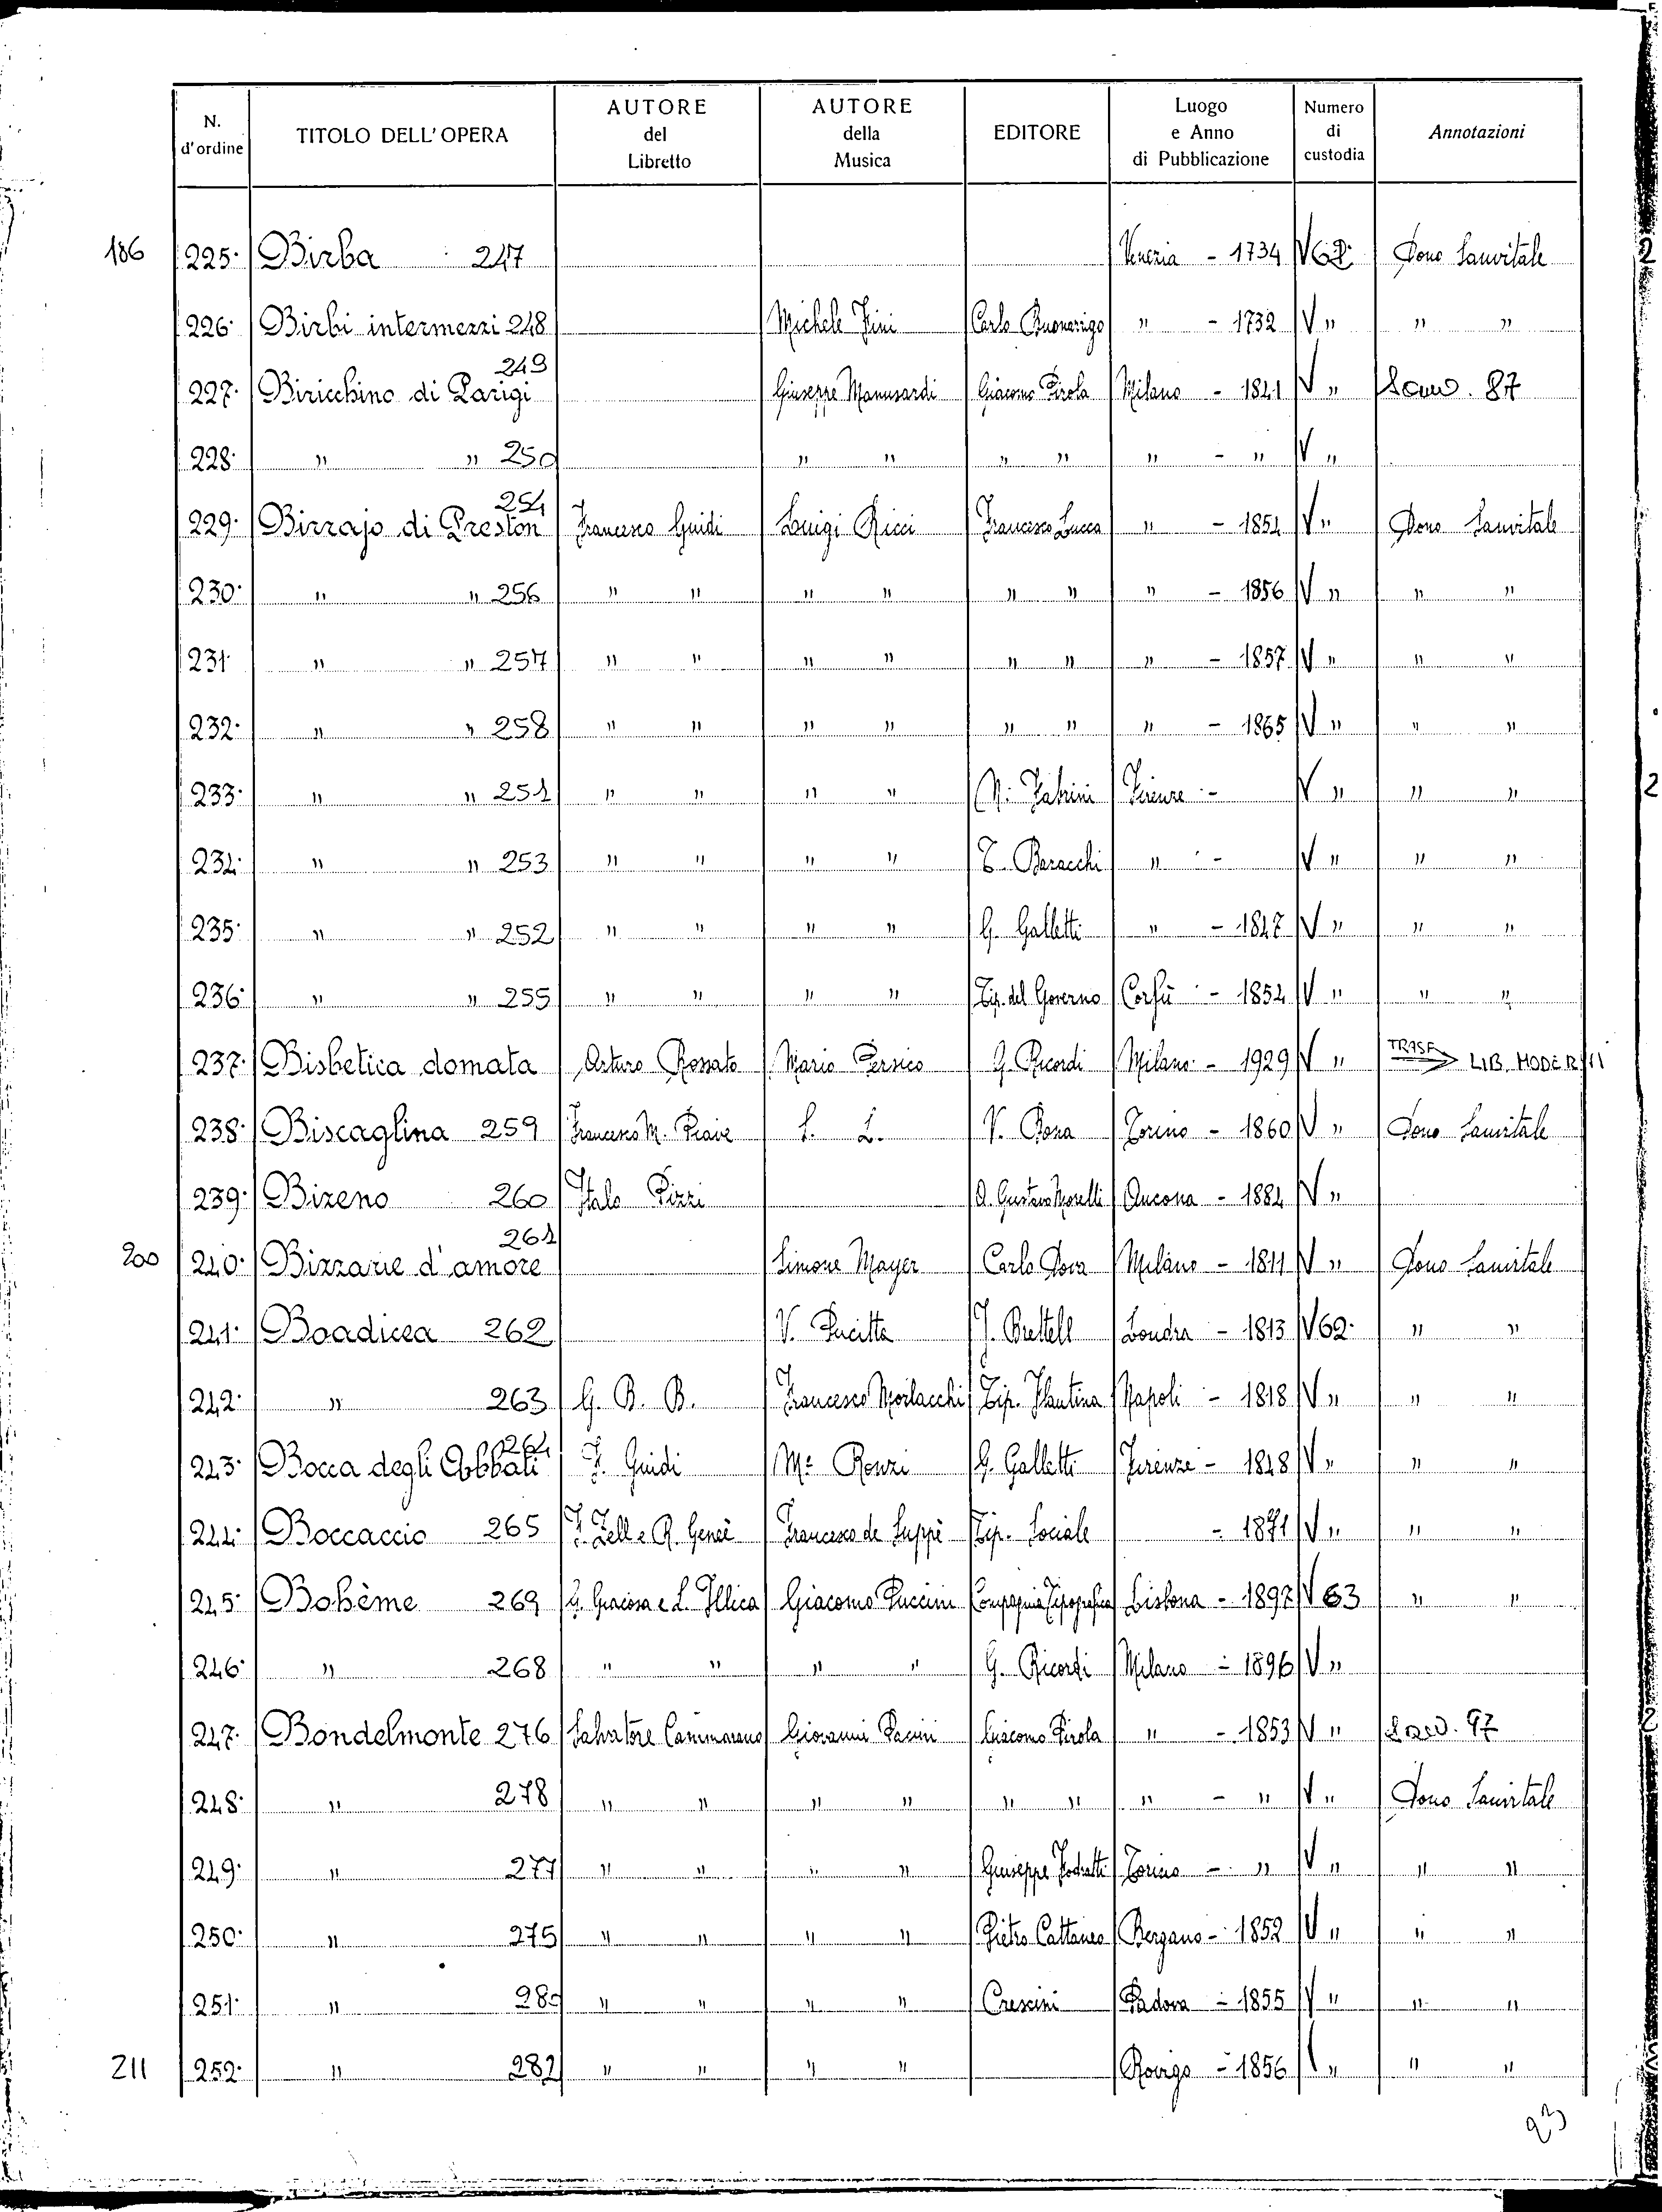 N. d'ordine | TITOLO DELL'OPERA | AUTORE del Libretto | AUTORE della Musica | EDITORE | Luogo e Anno di Pubblicazione | Numero di custodia | Annotazioni
186 225. Birba 247 Venezia - 1734 V 62. Dono Sanvitale
226. Birbi intermezzi 248 Michele Fini Carlo Buonarigo " - 1732 V " " "
227. Biricchino di Parigi 249 Giuseppe Manusardi Giacomo Pirola Milano - 1841 V " 87
228. " " 250 " " " " " - " V "
229. Birrajo di Preston 254 Francesco Guidi Luigi Ricci Francesco Lucca " - 1854 V " Dono Sanvitale
230. " " 256 " " " " " " " - 1856 V " " "
231 " " 257 " " " " " " " - 1857 V " " "
232. " " 258 " " " " " " " - 1865 V " " "
233. " " 251 " " " " N. Fabrini Firenze - V " " "
234. " " 253 " " " " T. Baracchi " - V " " "
235. " " 252 " " " " G. Galletti " - 1847 V " " "
236. " " 255 " " " " Tip. del Governo Corfù - 1854 V " " "
237. Bisbetica domata Arturo Rossato Mario Persico G. Ricordi Milano - 1929 V " TRASF LIB. MODER/11
238. Biscaglina 259 Francesco M. Piave S. L. V. Bona Torino - 1860 V " Dono Sanvitale
239. Bizeno 260 Italo Pizzi A. Gustavo Morelli Ancona - 1884 V "
200 240. Bizzarie d'amore 261 Simone Mayer Carlo Dova Milano - 1811 V " Dono Sanvitale
241. Boadicea 262 V. Pucitta J. Brettell Londra - 1813 V 62. " "
242. " 263 G. B. B. Francesco Morlacchi Tip. Flautina Napoli - 1818 V " " "
243. Bocca degli Abbati 264 F. Guidi M.° Ronzi G. Galletti Firenze - 1848 V " " "
244. Boccaccio 265 F. Zell e R. Geneè Francesco de Suppè Tip. Sociale - 1871 V " " "
245. Bohème 269 G. Giacosa e L. Illica Giacomo Puccini Compagnia Tipografica Lisbona - 1897 V 63 " "
246. " 268 " " " " G. Ricordi Milano - 1896 V "
247. Bondelmonte 276 Salvatore Cammarano Giovanni Pacini Giacomo Pirola " - 1853 V " 97
248. " 278 " " " " " " " - " V " Dono Sanvitale
249. " 277 " " " " Giuseppe Fodratti Torino - " V " " "
250. " 275 " " " " Pietro Cattaneo Bergamo - 1852 V " " "
251. " 280 " " " " Crescini Padova - 1855 V " " "
211 252. " 282 " " " " Rovigo - 1856 V " " "
23